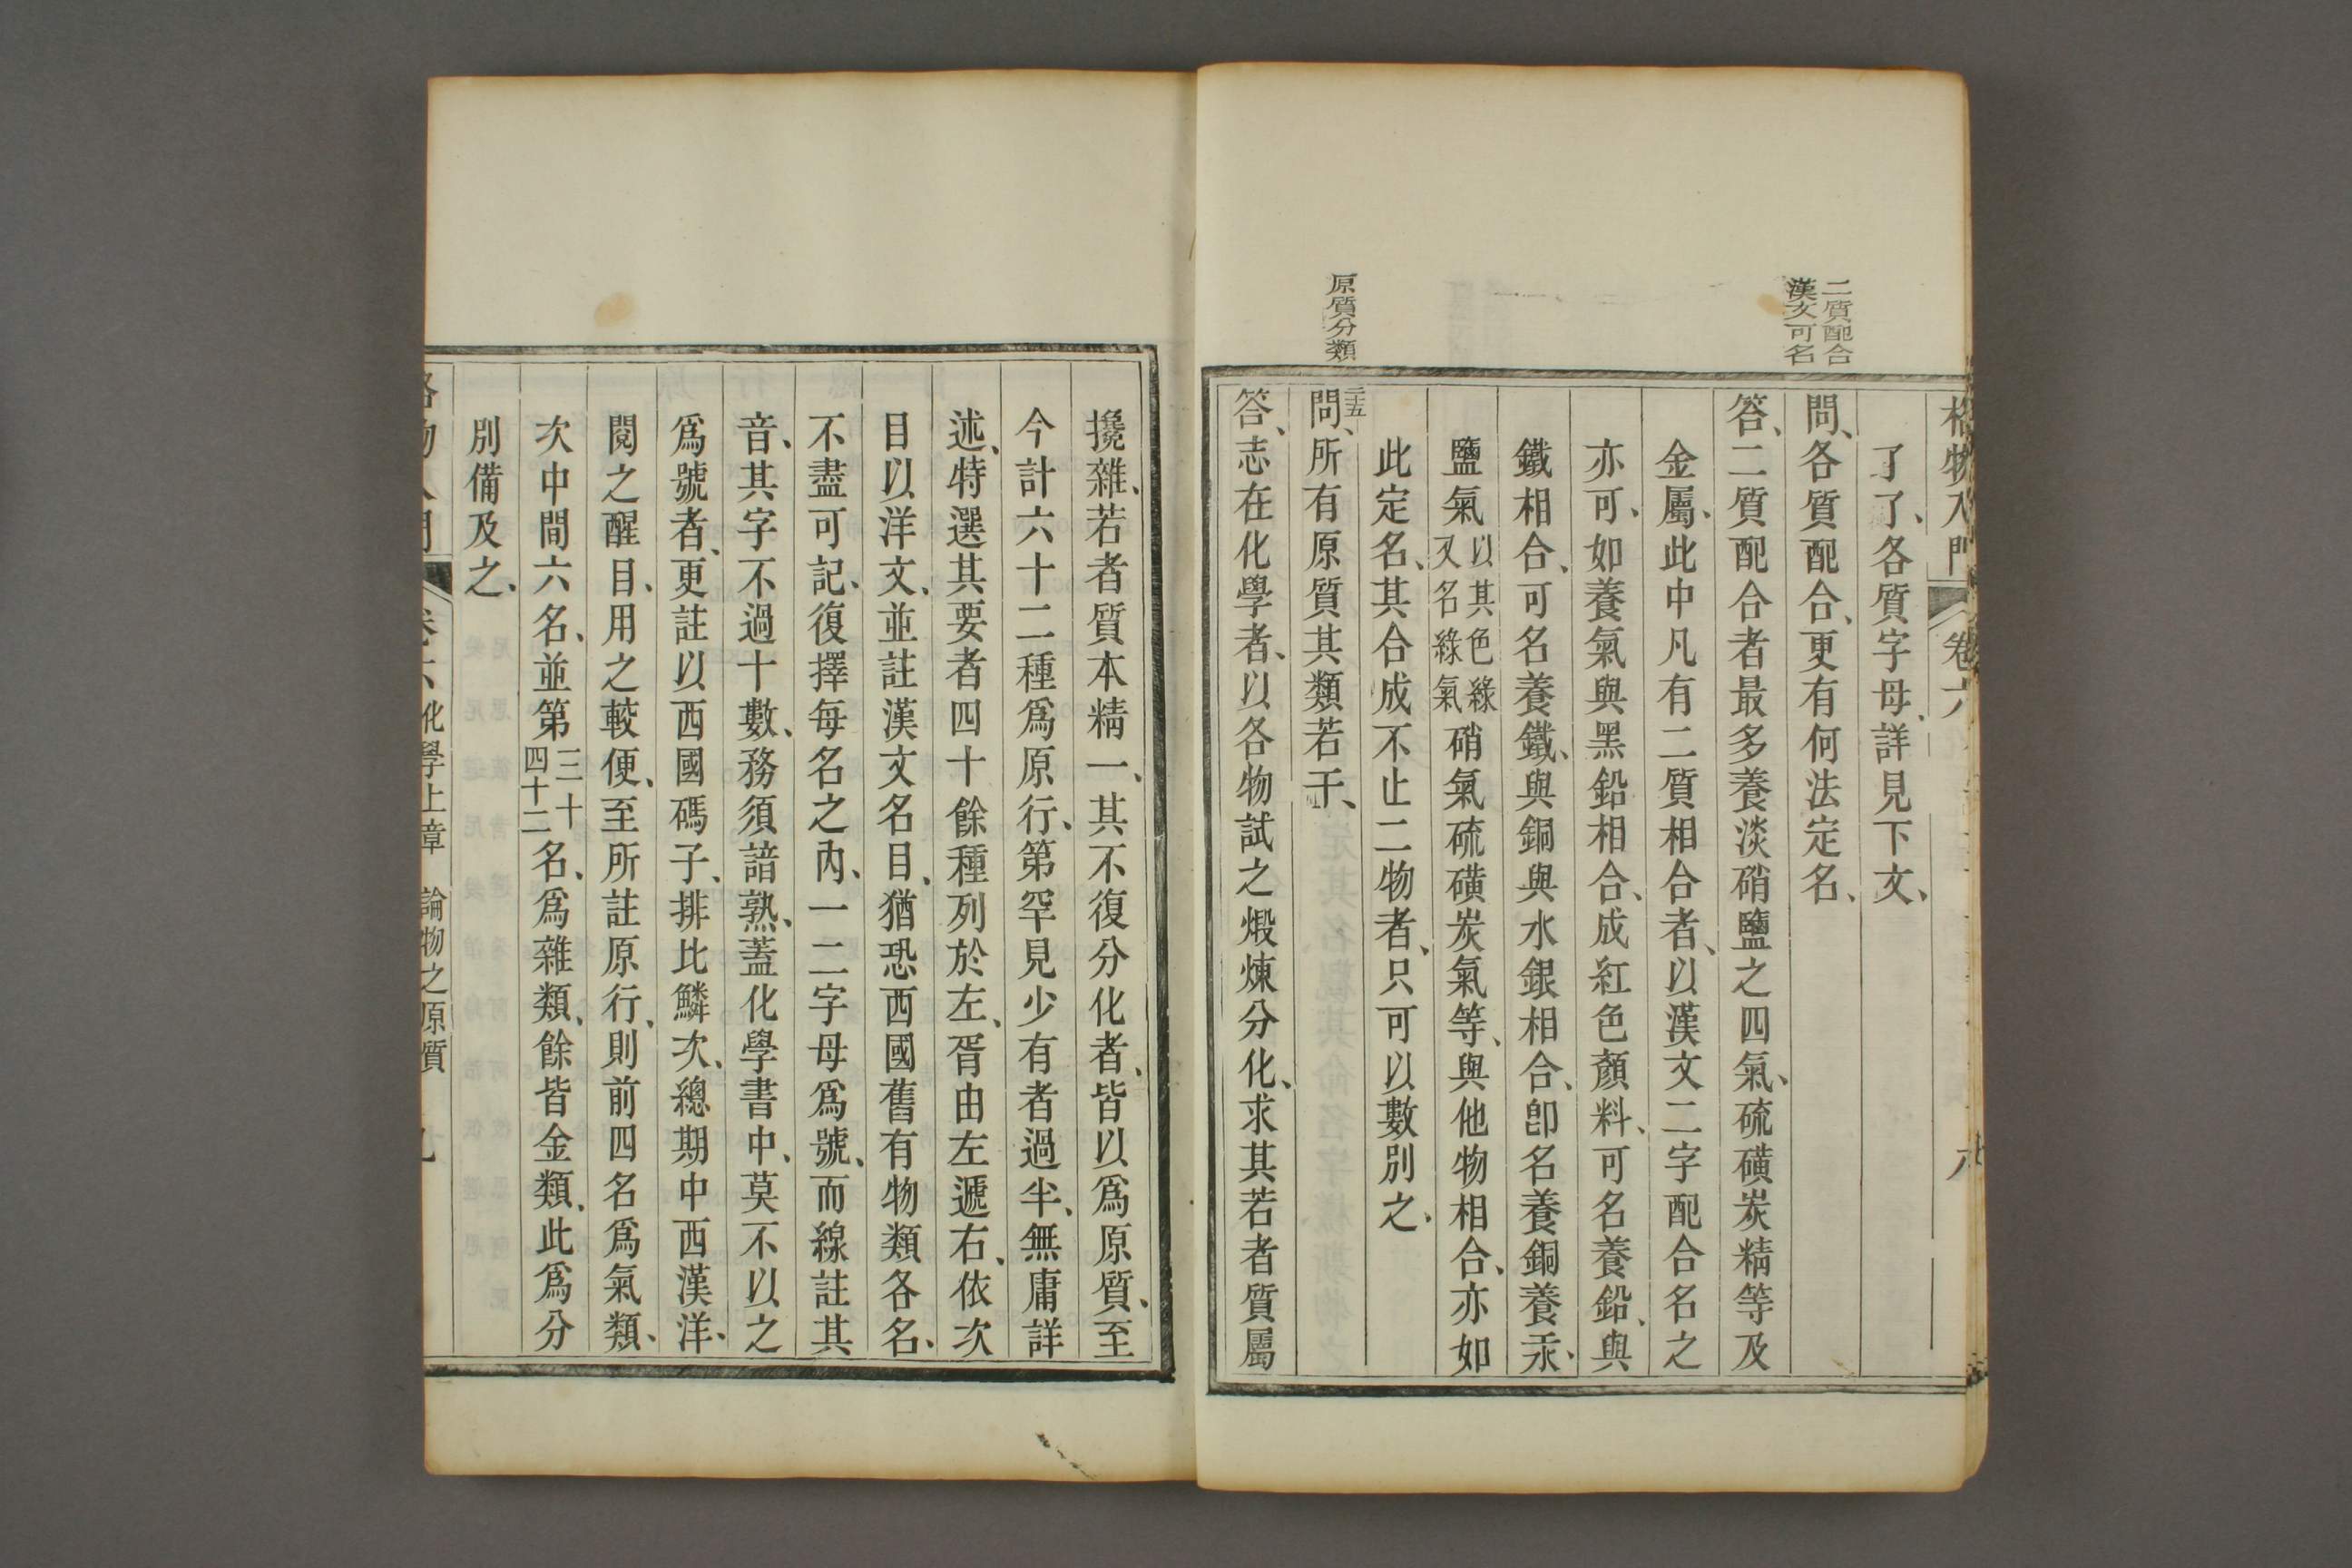 格物入門 卷六
二質配合
漢文可名
了了、各質字母、詳見下文、
問、各質配合、更有何法定名、
答、二質配合者最多養淡硝鹽之四氣、硫磺炭精等及
金屬、此中凡有二質相合者、以漢文二字配合名之
亦可、如養氣與黑鉛相合、成紅色顏料、可名養鉛、與
鐵相合、可名養鐵、與銅與水銀相合、卽名養銅養汞、
鹽氣以其色綠又名綠氣硝氣硫磺炭氣等、與他物相合、亦如
此定名、其合成不止二物者、只可以數別之、
原質分類
二十五
問、所有原質其類若干、
答、志在化學者、以各物試之煅煉分化、求其若者質屬
攙雜、若者質本精一、其不復分化者、皆以爲原質、至
今計六十二種爲原行、第罕見少有者過半、無庸詳
述、特選其要者四十餘種列於左、胥由左遞右、依次
目以洋文、並註漢文名目、猶恐西國舊有物類各名、
不盡可記、復擇每名之內、一二字母爲號、而線註其
音、其字不過十數、務須諳熟、蓋化學書中、莫不以之
爲號者、更註以西國碼子、排比鱗次、總期中西漢洋、
閱之醒目、用之較便、至所註原行、則前四名爲氣類、
次中間六名、並第三十四十二名、爲雜類、餘皆金類、此爲分
別備及之、
格物入門 卷六 化學上章 論物之原質